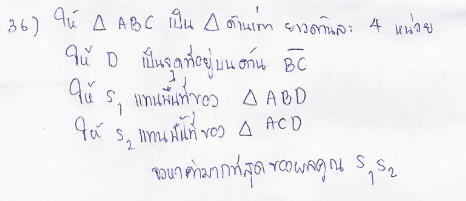 36) ให้ △ ABC เป็น △ ด้านเท่า ยาวด้านละ 4 หน่วย
ให้ D เป็นจุดที่อยู่บนด้าน BC
ให้ S₁ แทนพื้นที่ของ △ ABD
ให้ S₂ แทนพื้นที่ของ △ ACD
จงหาค่ามากที่สุดของผลคูณ S₁S₂